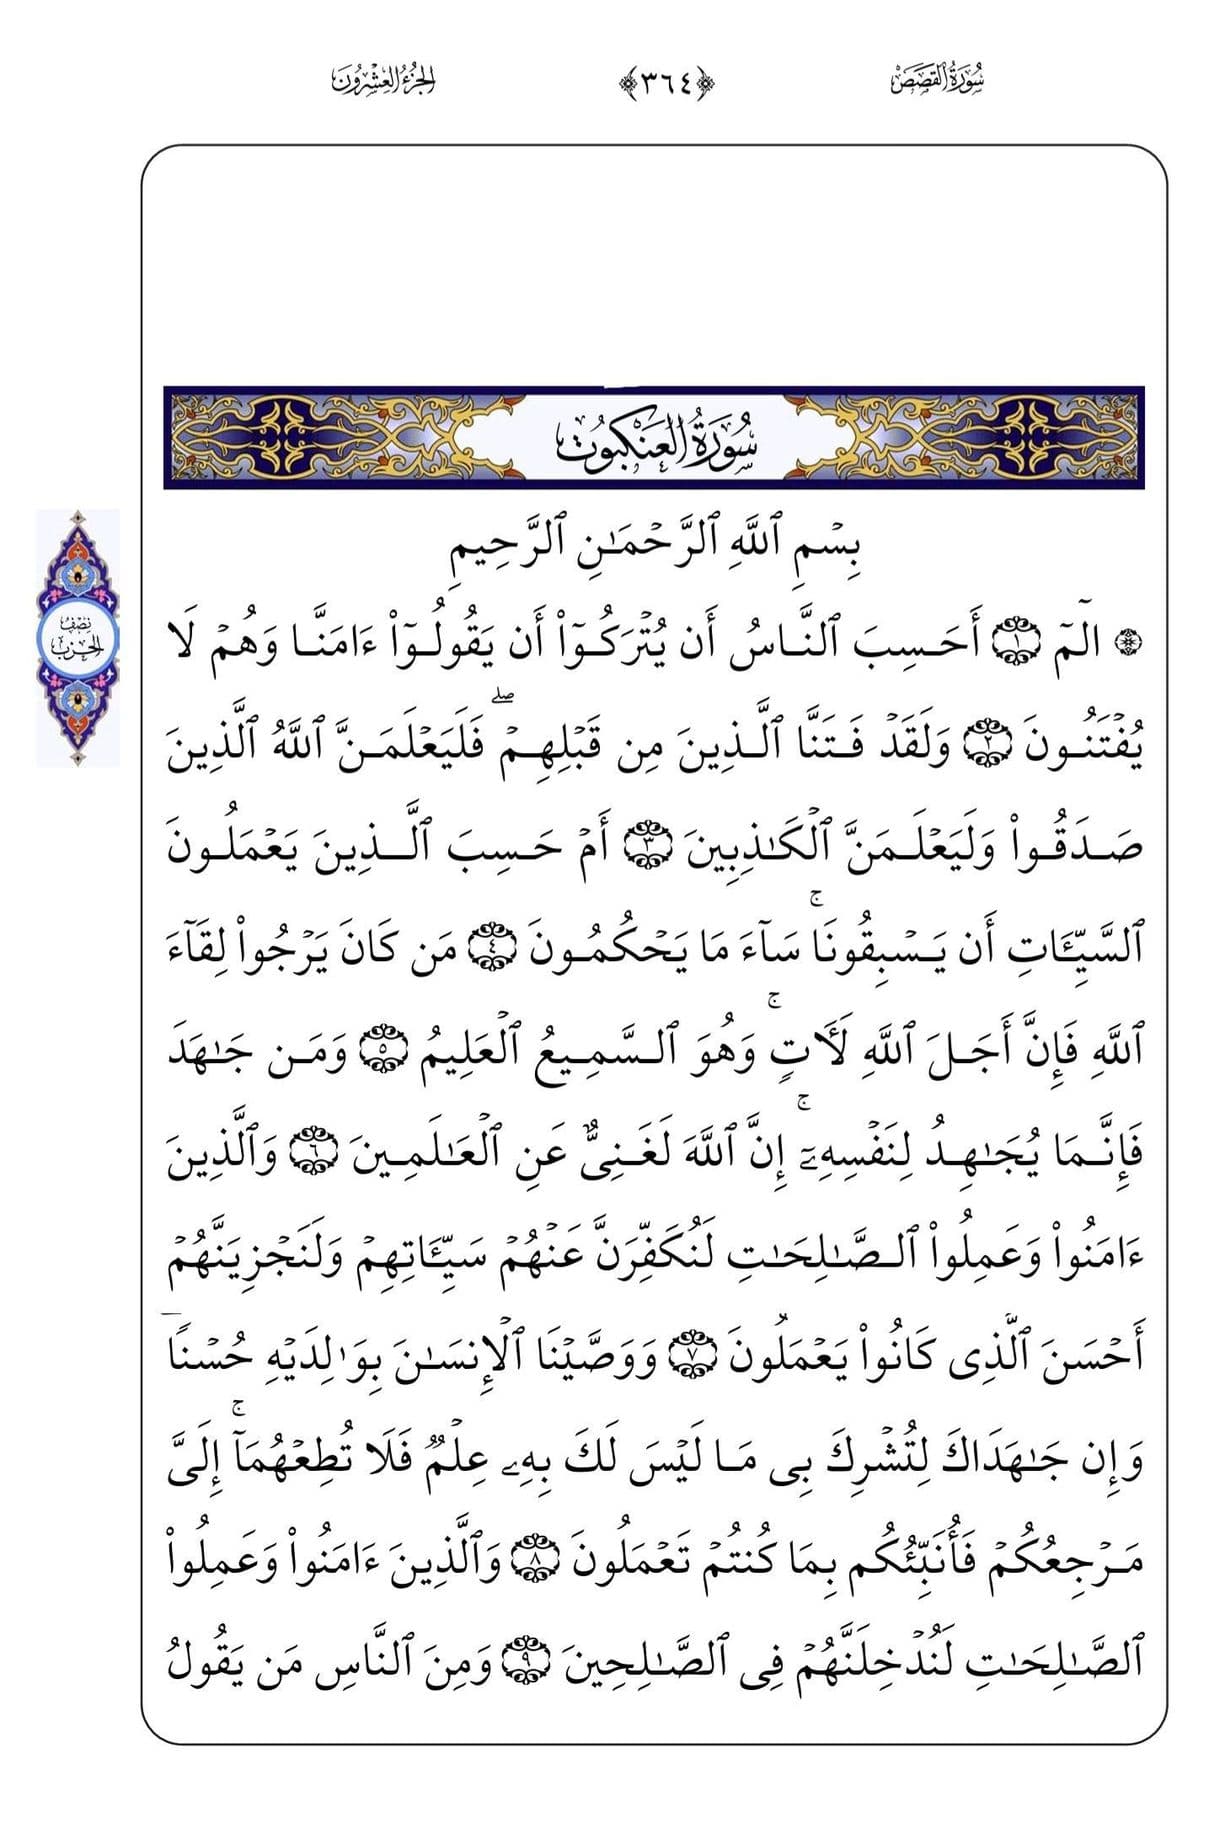 سُورَةُ القَصَصِ ﴿٣٦٤﴾ الجُزْءُ العِشْرُونَ
سُورَةُ العَنْكَبُوتِ
بِسْمِ ٱللَّهِ ٱلرَّحْمَـٰنِ ٱلرَّحِيمِ
۞ الٓمٓ ١ أَحَسِبَ ٱلنَّاسُ أَن يُتْرَكُوٓا۟ أَن يَقُولُوٓا۟ ءَامَنَّا وَهُمْ لَا
نِصْفُ
الحِزْبِ
يُفْتَنُونَ ٢ وَلَقَدْ فَتَنَّا ٱلَّذِينَ مِن قَبْلِهِمْ ۖ فَلَيَعْلَمَنَّ ٱللَّهُ ٱلَّذِينَ
صَدَقُوا۟ وَلَيَعْلَمَنَّ ٱلْكَـٰذِبِينَ ٣ أَمْ حَسِبَ ٱلَّذِينَ يَعْمَلُونَ
ٱلسَّيِّـَٔاتِ أَن يَسْبِقُونَا ۚ سَآءَ مَا يَحْكُمُونَ ٤ مَن كَانَ يَرْجُوا۟ لِقَآءَ
ٱللَّهِ فَإِنَّ أَجَلَ ٱللَّهِ لَـَٔاتٍ ۚ وَهُوَ ٱلسَّمِيعُ ٱلْعَلِيمُ ٥ وَمَن جَـٰهَدَ
فَإِنَّمَا يُجَـٰهِدُ لِنَفْسِهِۦٓ ۚ إِنَّ ٱللَّهَ لَغَنِىٌّ عَنِ ٱلْعَـٰلَمِينَ ٦ وَٱلَّذِينَ
ءَامَنُوا۟ وَعَمِلُوا۟ ٱلصَّـٰلِحَـٰتِ لَنُكَفِّرَنَّ عَنْهُمْ سَيِّـَٔاتِهِمْ وَلَنَجْزِيَنَّهُمْ
أَحْسَنَ ٱلَّذِى كَانُوا۟ يَعْمَلُونَ ٧ وَوَصَّيْنَا ٱلْإِنسَـٰنَ بِوَٰلِدَيْهِ حُسْنًا
وَإِن جَـٰهَدَاكَ لِتُشْرِكَ بِى مَا لَيْسَ لَكَ بِهِۦ عِلْمٌ فَلَا تُطِعْهُمَآ ۚ إِلَىَّ
مَرْجِعُكُمْ فَأُنَبِّئُكُم بِمَا كُنتُمْ تَعْمَلُونَ ٨ وَٱلَّذِينَ ءَامَنُوا۟ وَعَمِلُوا۟
ٱلصَّـٰلِحَـٰتِ لَنُدْخِلَنَّهُمْ فِى ٱلصَّـٰلِحِينَ ٩ وَمِنَ ٱلنَّاسِ مَن يَقُولُ